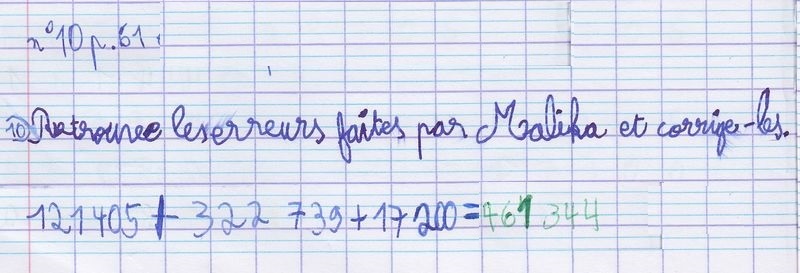 n°10 p.61.
10) Retrouve les erreurs faites par Malika et corrige-les.
121405 + 322 739 + 17 200 = 461 344